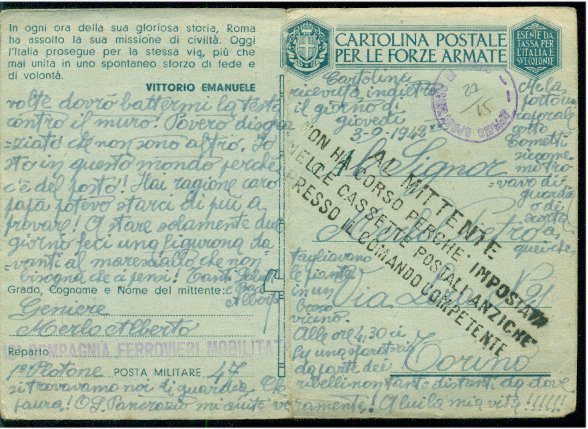 In ogni ora della sua gloriosa storia, Roma
ha assolto la sua missione di civiltà. Oggi
l'Italia prosegue per la stessa via, più che
mai unita in uno spontaneo sforzo di fede e
di volontà.
VITTORIO EMANUELE
volte dovrò battermi la testa
contro il muro! Povero disgra-
ziato che non sono altro. Io
sto in questo mondo perchè
c'è del posto! Hai ragione caro
papà potevo starci di più a
provare! A stare solamente due
giorno feci una figurona da-
vanti al maresciallo che non
bisogna che ci pensi! Tanti
Alberto
Grado, Cognome e Nome del mittente:
Geniere
Merlo Alberto
COMPAGNIA FERROVIERI MOBILITAT
Reparto
1° Plotone POSTA MILITARE 47
ci trovavamo noi di guardia. Che
paura! O S. Pancrazio mi aiutò veramente! A lui la mia vita!!!!!!
CARTOLINA POSTALE
PER LE FORZE ARMATE
ESENTE DA
TASSA PER
L'ITALIA E
SVE COLONIE
Cartolina
ricevuta indietro
il giorno di
giovedì
3-9-1942
27/15
Signor
Merlo Pietro
Via
Torino
AL MITTENTE
NON HA CORSO PERCHE' IMPOSTATA
NELLE CASSETTE POSTALI ANZICHE'
PRESSO IL COMANDO COMPETENTE
caporale
scorta
trovavo di
guardia
o di
scorta
tagliavano
le piante
in un
bosco
vicino.
Alle ore 4,30 ci
fu una sparatoria
da parte dei
ribelli non tanto distanti da dove